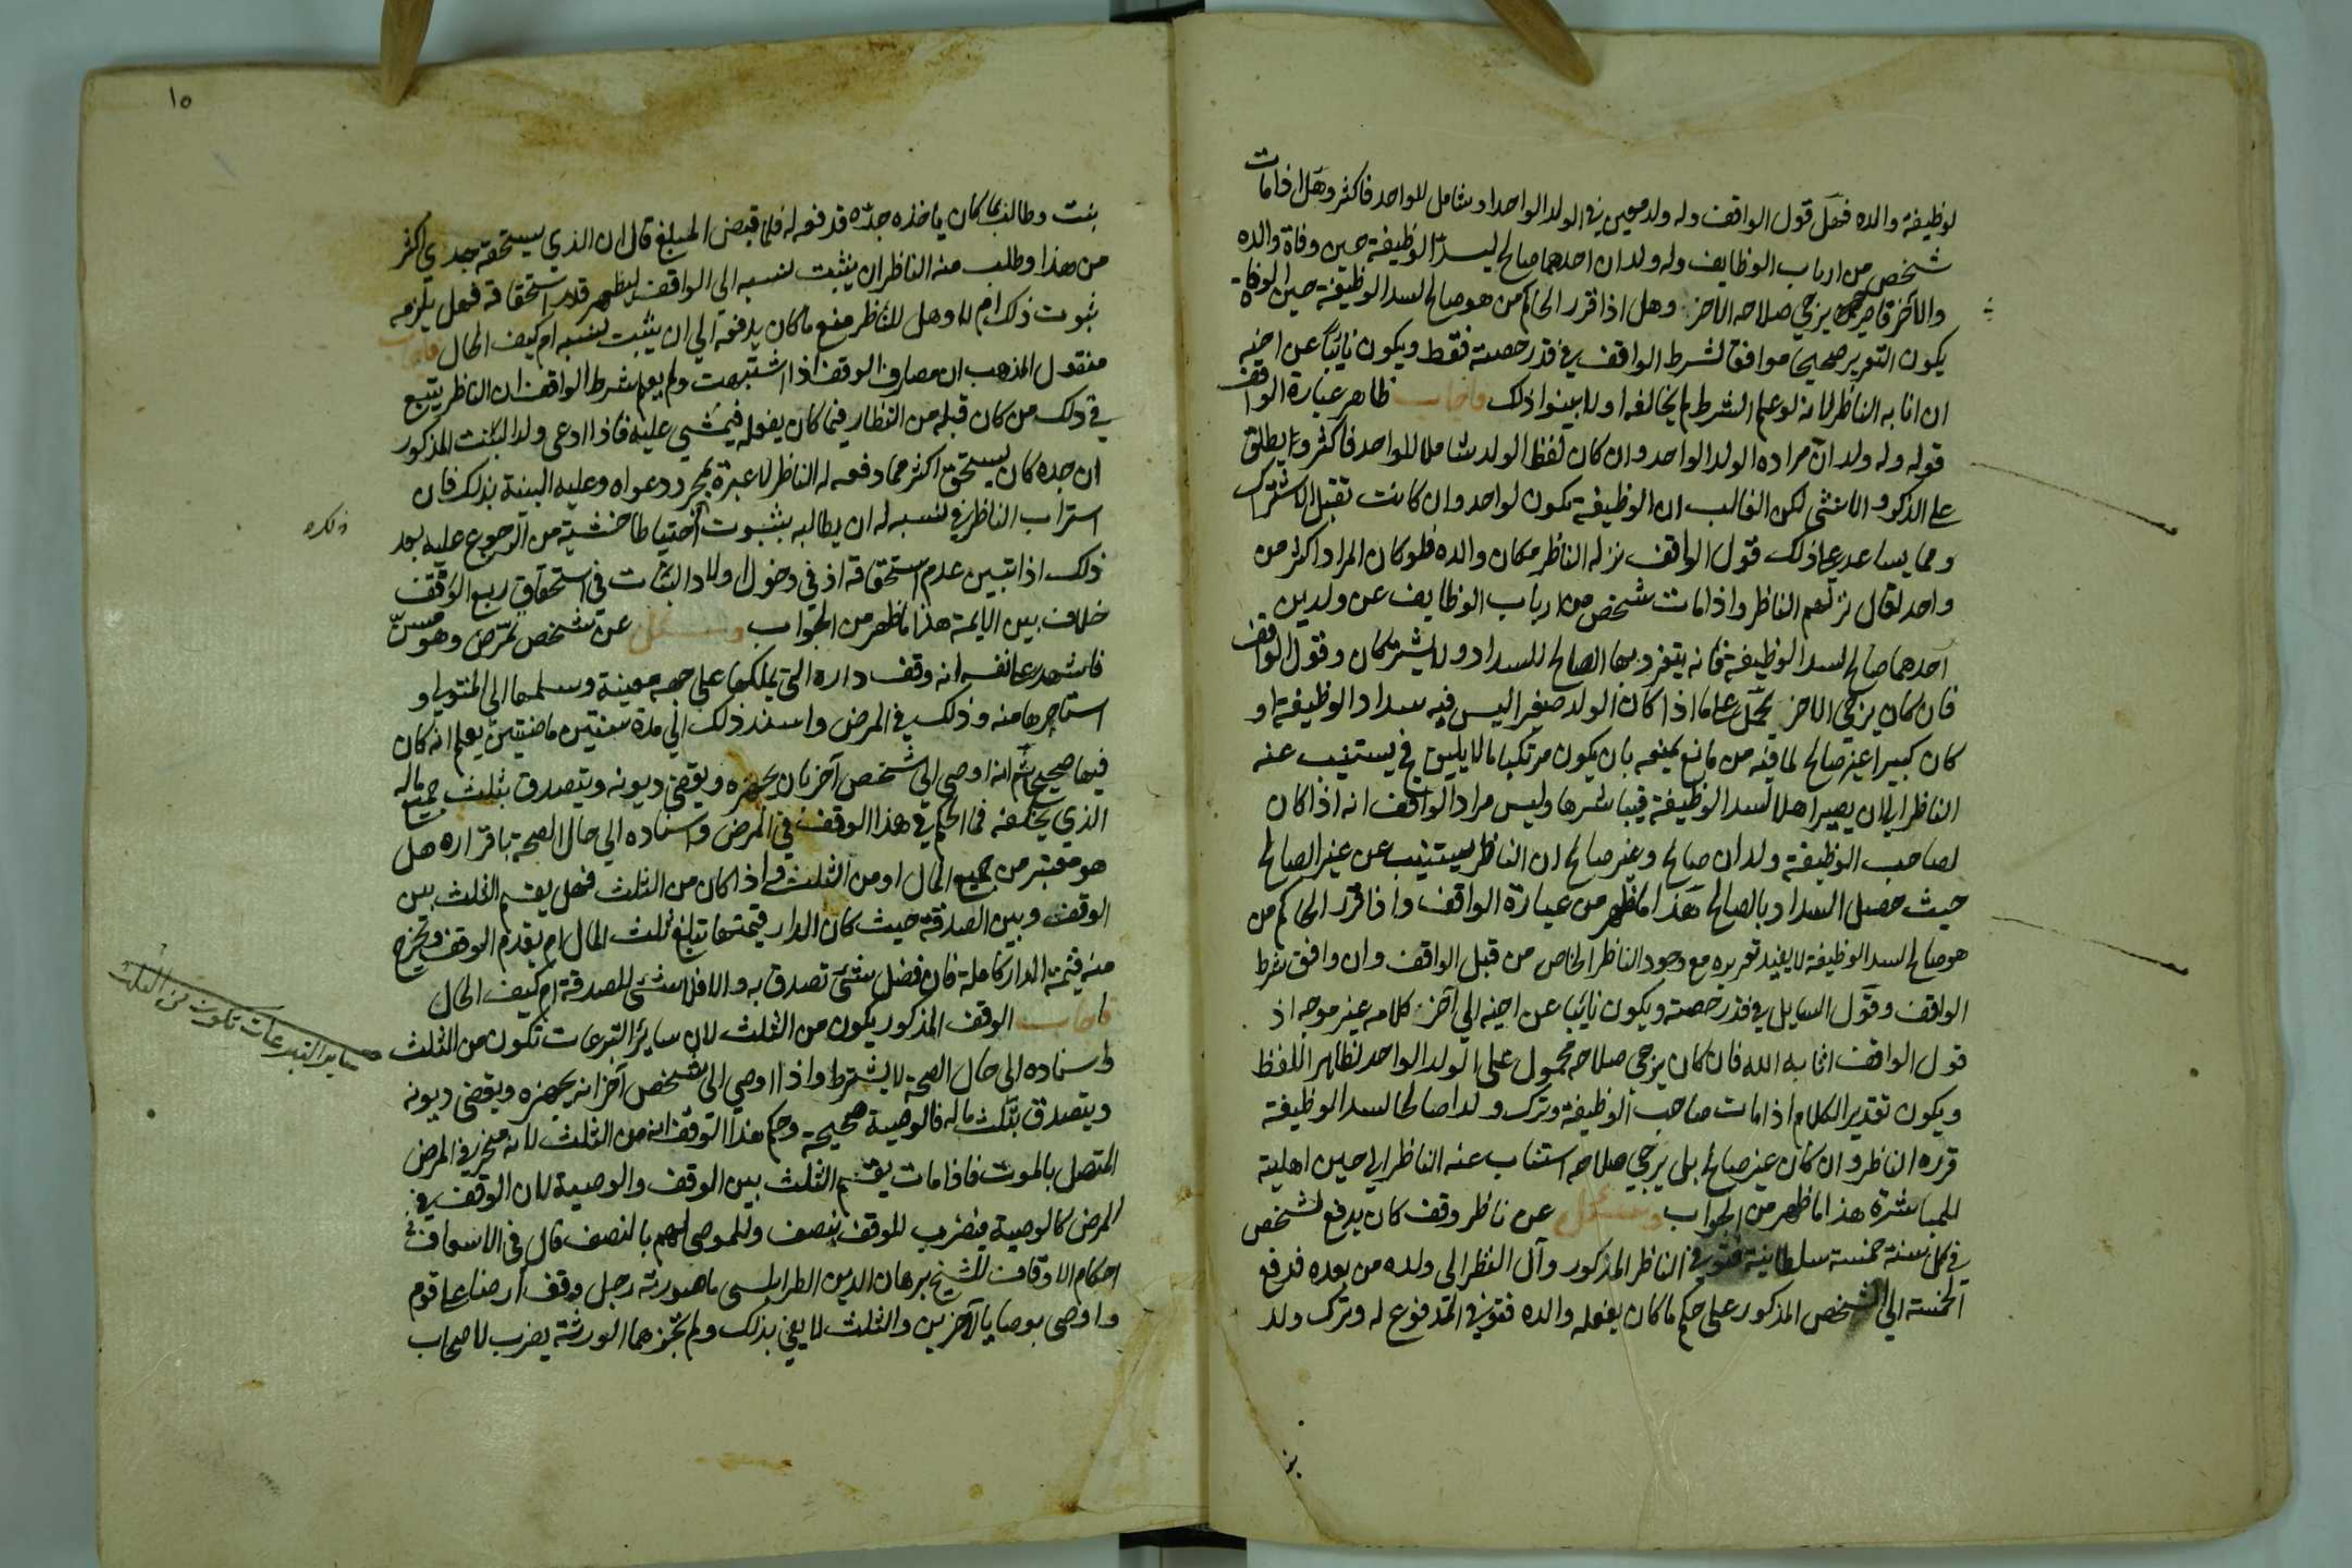 لوظيفة والده فهل قول الواقف وله ولد معين في الولد الواحد او شامل للواحد فاكثر وهل اذا مات
شخص من ارباب الوظايف وله ولدان احدهما صالح ليسد الوظيفة حين وفاة والده
والآخر قاصر يرجي صلاحه الاخر وهل اذا قرر الحاكم من هو صالح لسد الوظيفة حين الوفاة
يكون التقرير صحيحا موافقا لشرط الواقف في قدر حصته فقط ويكون نائبا عن اخيه
ان انابه الناظر لانه لو علم الشرط لم يخالفه او لا بينوا ذلك فاجاب ظاهر عبارة الواقف
قوله وله ولد ان مراده الولد الواحد وان كان لفظ الولد شاملا للواحد فاكثر ويطلق
على الذكر والانثى لكن الغالب ان الوظيفة تكون لواحد وان كانت تقبل الاشتراك
ومما يساعد على ذلك قول الواقف نزله الناظر مكان والده فلو كان المراد اكثر من
واحد لقال نزلهم الناظر واذا مات شخص من ارباب الوظايف عن ولدين
احدهما صالح لسد الوظيفة فانه يتفرد بها الصالح للسداد ولا يشتركان وقول الواقف
فان كان يرجي الاخر يحمل على ما اذا كان الولد صغيرا ليس فيه سداد الوظيفة او
كان كبيرا غير صالح لما فيه من مانع يمنعه بان يكون مرتكبا مالا يليق فيستنيب عنه
الناظر الى ان يصير اهلا لسد الوظيفة فيباشرها وليس مراد الواقف انه اذا كان
لصاحب الوظيفة ولدان صالح وغير صالح ان الناظر يستنيب عن غير الصالح
حيث حصل السداد بالصالح هذا ما ظهر من عبارة الواقف واذا قرر الحاكم من
هو صالح لسد الوظيفة لا يفيد تقريره مع وجود الناظر الخاص من قبل الواقف وان وافق شرط
الواقف وقول السايل في قدر حصته ويكون نائبا عن اخيه الي آخر كلامه غير موجه اذ
قول الواقف اثابه الله فان كان يرجي صلاحه محمول على الولد الواحد لظاهر اللفظ
ويكون تقدير الكلام اذا مات صاحب الوظيفة وترك ولدا صالحا لسد الوظيفة
قرره الناظر وان كان غير صالح بل يرجي صلاحه استناب عنه الناظر الى حين اهلية
للمباشرة هذا ما ظهر من الجواب وسئل عن ناظر وقف كان يدفع لشخص
في كل سنة خمسة سلطانية فتوفي الناظر المذكور وآل النظر الى ولده من بعده فدفع
الخمسة الي الشخص المذكور على حكم ما كان يفعله والده فتوفي المدفوع له وترك ولد
بنت وطالب بما كان ياخذه جده فدفعه له فلما قبض المبلغ قال ان الذي يستحقه جدي اكثر
من هذا وطلب منه الناظر ان يثبت نسبه الى الواقف ليظهر قدر استحقاقه فهل يلزمه
ثبوت ذلك ام لا وهل للناظر منع ما كان يدفعه الي ان يثبت نسبه ام كيف الحال فاجاب
منقول المذهب ان مصارف الوقف اذا اشتبهت ولم يعلم شرط الواقف ان الناظر يتبع
في ذلك من كان قبله من النظار فيما كان يفعله فيمشي عليه فاذا ادعى ولد البنت المذكور
ان جده كان يستحق اكثر مما دفعه له الناظر لا عبرة بمجرد دعواه وعليه البينة بذلك فان
استراب الناظر في نسبه له ان يطالبه بثبوت احتياطا خشية من الرجوع عليه بعد
ذلك اذا تبين عدم استحقاقه اذ في دخول اولاد البنات في استحقاق ريع الوقف
خلاف بين الايمة هذا ما ظهر من الجواب وسئل عن شخص تمرض وهو مسن
فاشهد على نفسه انه وقف داره التي يملكها على جهة معينة وسلمها الي المتولي و
استاجرها منه وذلك في المرض واسند ذلك الي مدة سنتين ماضيتين يعلم انه كان
فيها صحيحا ثم انه اوصى الى شخص آخر بان يجهزه ويقضي ديونه ويتصدق بثلث جميع ماله
الذي يخلفه فما الحكم في هذا الوقف في المرض واسناده الي حال الصحة باقراره هل
هو معتبر من جميع المال او من الثلث واذا كان من الثلث فهل يقسم الثلث بين
الوقف وبين الصدقة حيث كان الدار قيمتها تبلغ ثلث المال ام يقدم الوقف وتخرج
منه قيمة الدار كاملة فان فضل شيء تصدق به والا فلا شيء للصدقة ام كيف الحال
فاجاب الوقف المذكور يكون من الثلث لان ساير التبرعات تكون من الثلث
واسناده الى حال الصحة لا يشترط واذا اوصي الى شخص آخر انه يجهزه ويقضي ديونه
ويتصدق بثلث ماله فالوصية صحيحة وحكم هذا الوقف انه من الثلث لانه منجز في المرض
المتصل بالموت فاذا مات يقسم الثلث بين الوقف والوصية لان الوقف في
المرض كالوصية فيضرب للوقف بنصف وللموصي لهم بالنصف قال في الاسعاف في
احكام الاوقاف للشيخ برهان الدين الطرابلسي ما صورته رجل وقف ارضا على قوم
واوصى بوصايا لآخرين والثلث لا يفي بذلك ولم تجزهما الورثة يضرب لاصحاب
١٥
ساير التبرعات تكون من الثلث